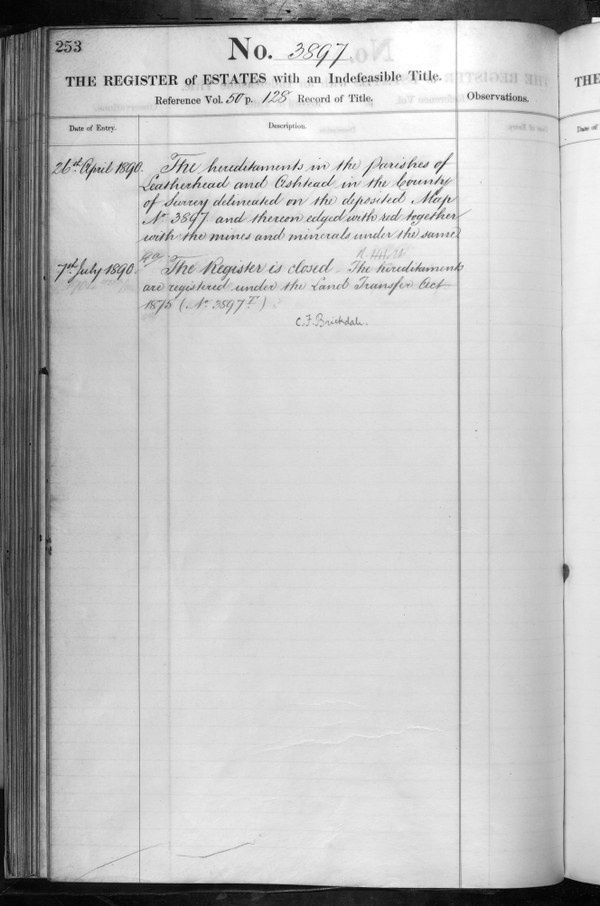 253
No. 3897.
THE REGISTER of ESTATES with an Indefeasible Title.
Reference Vol. 50 p. 128 Record of Title.
Observations.
Date of Entry.
Description.
26th April 1890.
The hereditaments in the Parishes of
Leatherhead and Ashtead in the County
of Surrey delineated on the deposited Map
No 3897 and thereon edged with red together
with the mines and minerals under the same
7th July 1890.
The Register is closed. The hereditaments
are registered under the Land Transfer Act
1875 (No 3897 T)
C. F. Brickdale.
THE
Date of